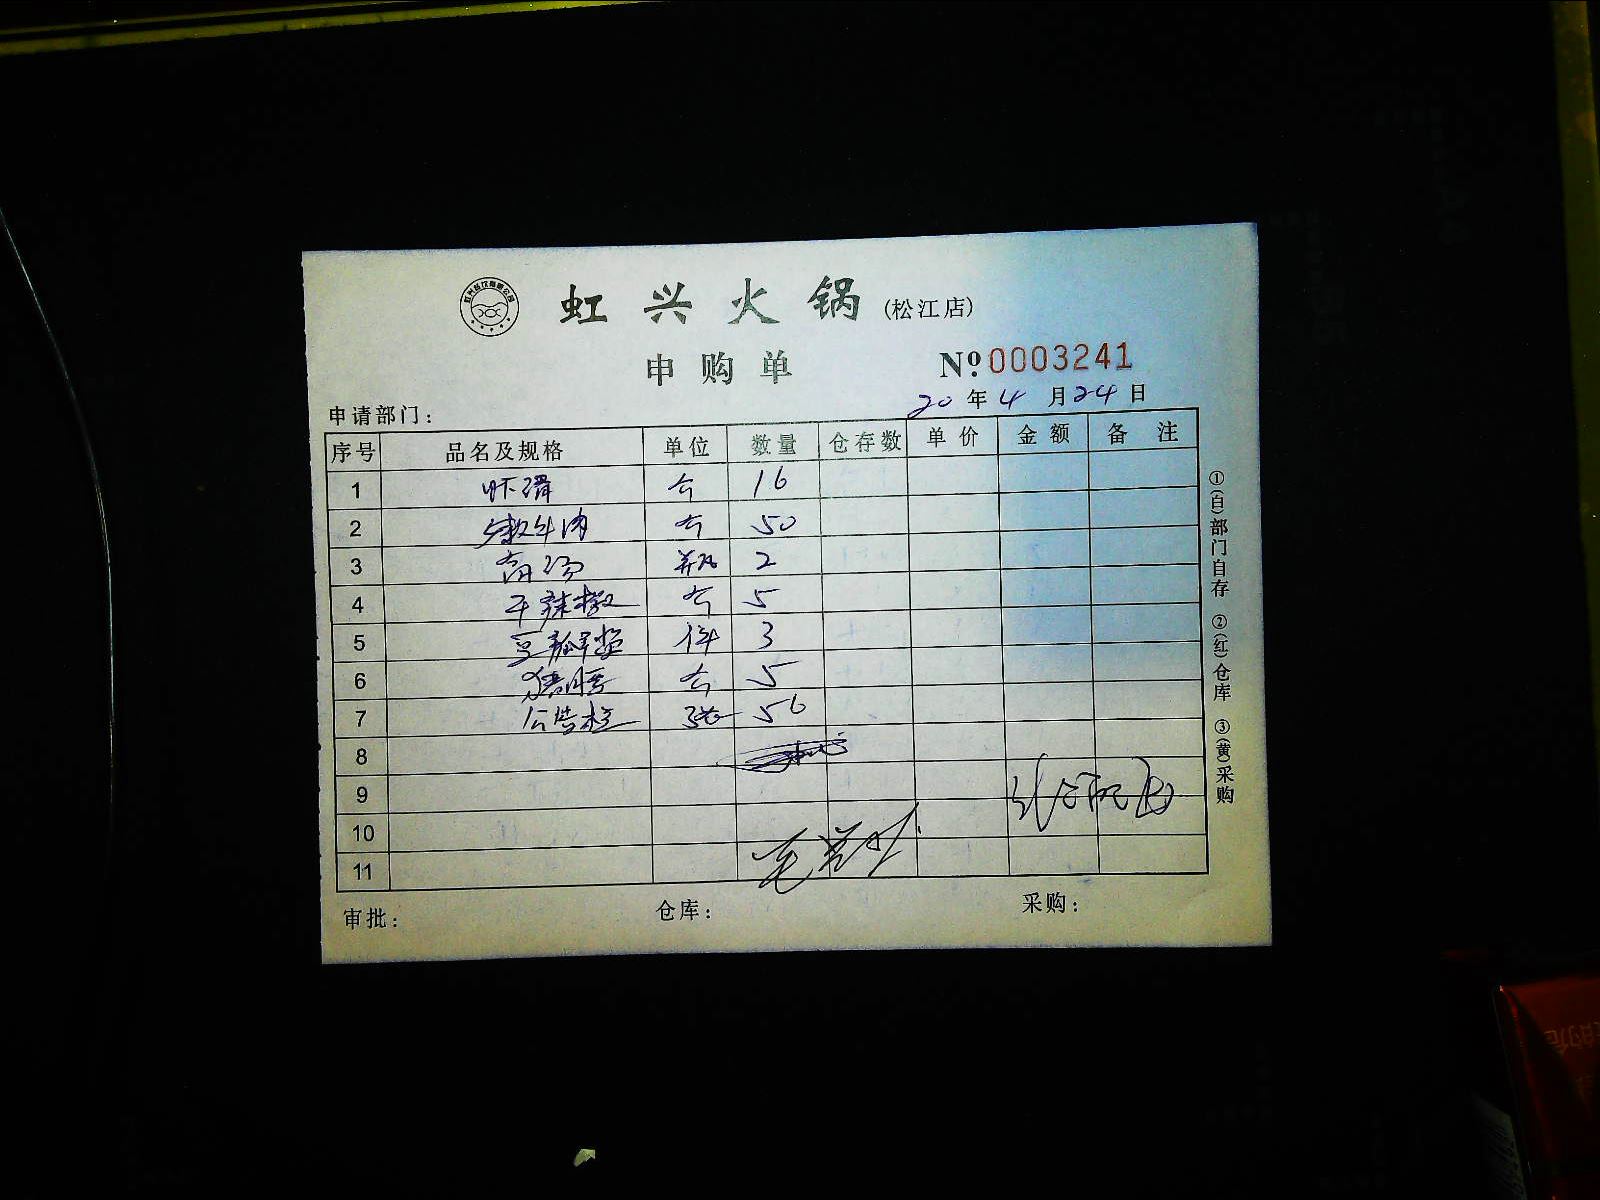 虹兴火锅(松江店)
申购单
№:0003241
20年4月24日
申请部门:
序号 品名及规格 单位 数量 仓存数 单价 金额 备注
1 虾滑 个 16
2 嫩牛肉 个 50
3 高汤 瓶 2
4 干辣椒 个 5
5 豆瓣 件 3
6 个 5
7 公告栏 张 56
8
9
10
11
审批: 仓库: 采购:
①(白)部门自存 ②(红)仓库 ③(黄)采购